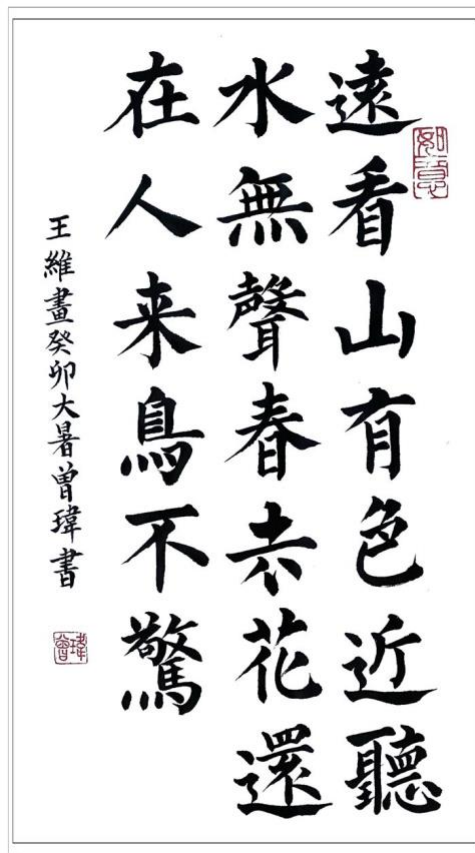 遠看山有色近聽
水無聲春去花還
在人来鳥不驚
王維畫癸卯大暑曾瑋書
如意
曾瑋